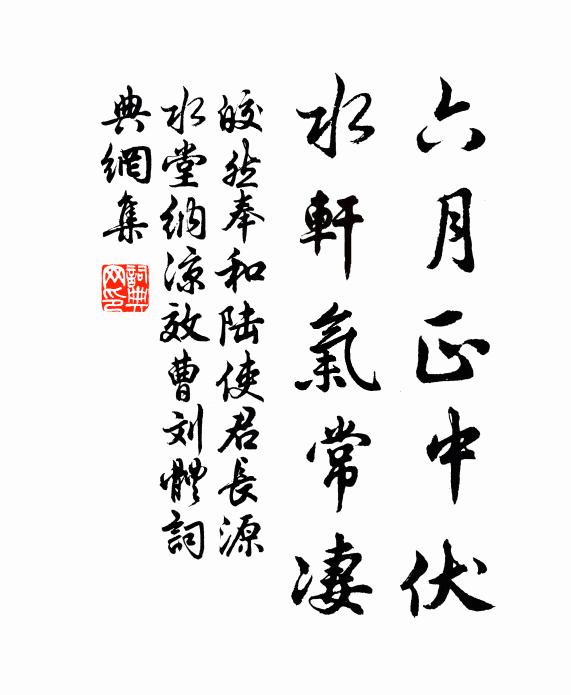 六月正中伏
水軒氣常凄
皎然奉和陆使君長源
水堂纳涼效曹刘體詞
典網集
詞典网印